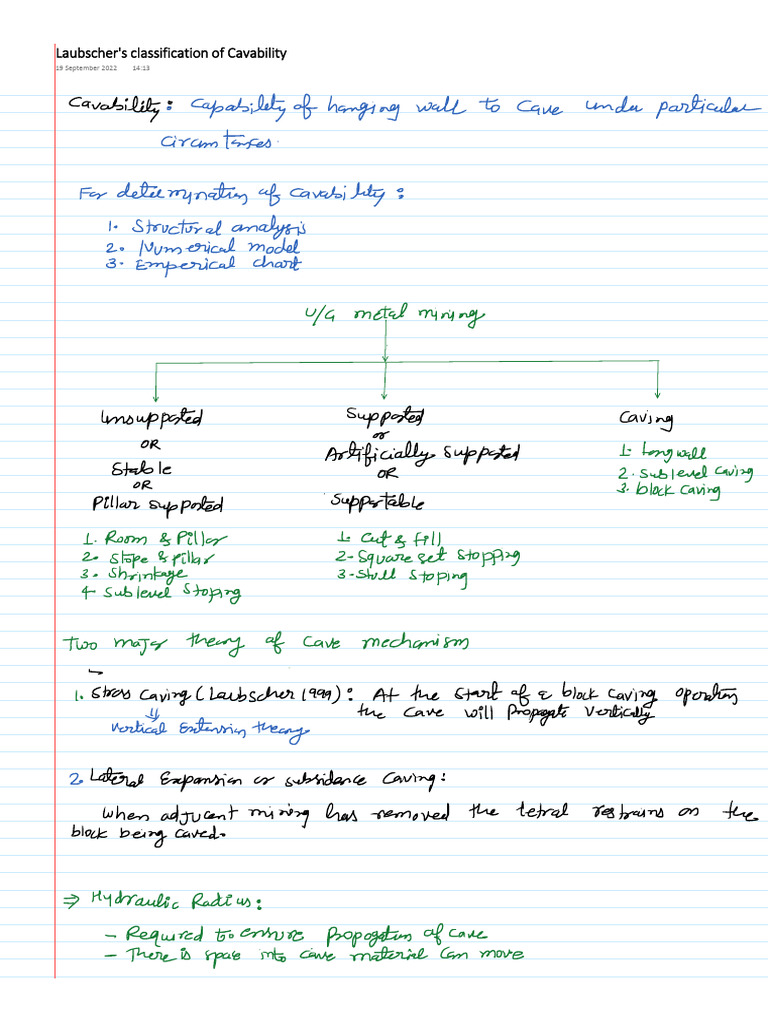 Laubscher's classification of Cavability
19 September 2022 14:13
Cavability: Capability of hanging wall to cave under particular
circumtanses.
For determination of cavability:
1. Structural analysis
2. Numerical model
3. Emperical chart
U/G metal mining
Unsupported
OR
Stable
OR
Pillar supported
1. Room & Pillar
2. Stope & pillar
3. Shrinkage
4- Sublevel Stoping
Supported
or
Artificially supported
OR
Supportable
1. Cut & fill
2- Square set stopping
3- Stull stoping
Caving
1. Longwall
2. Sublevel caving
3. block caving
Two major theory of cave mechanism
1. Stress Caving (Laubscher 1999): At the start of a block caving operation
the cave will propagate vertically
vertical Extension theory
2. Lateral Expansion or subsidance caving:
when adjucent mining has removed the letral restrains on the
block being caved.
⇒ Hydraulic Radius:
- Required to ensure propogation of cave
- There is space into cave material can move